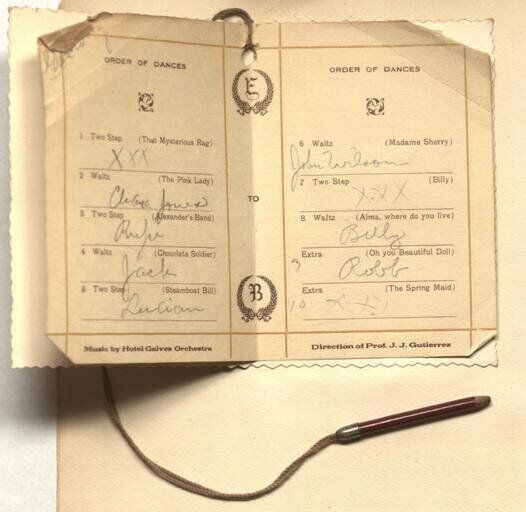 ORDER OF DANCES
1 Two Step (That Mysterious Rag)
XXX
2 Waltz (The Pink Lady)
Jones
3 Two Step (Alexander's Band)
4 Waltz (Chocolata Soldier)
Jack
5 Two Step (Steamboat Bill)
Lucian
Music by Hotel Galvez Orchestra
E
TO
B
ORDER OF DANCES
6 Waltz (Madame Sherry)
John Wilson
7 Two Step (Billy)
XXX
8 Waltz (Alma, where do you live)
Billy
Extra (Oh you Beautiful Doll)
9 Robb
Extra (The Spring Maid)
10 X.X.X
Direction of Prof. J. J. Gutierres